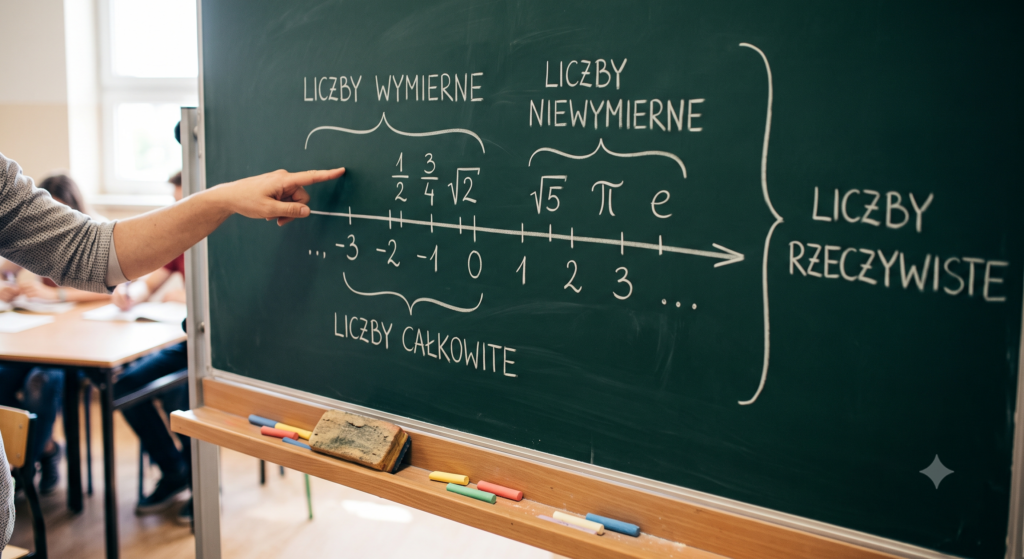 LICZBY WYMIERNE
LICZBY
NIEWYMIERNE
1/2 3/4 √2 √5 π e
... -3 -2 -1 0 1 2 3 ...
LICZBY CAŁKOWITE
LICZBY
RZECZYWISTE